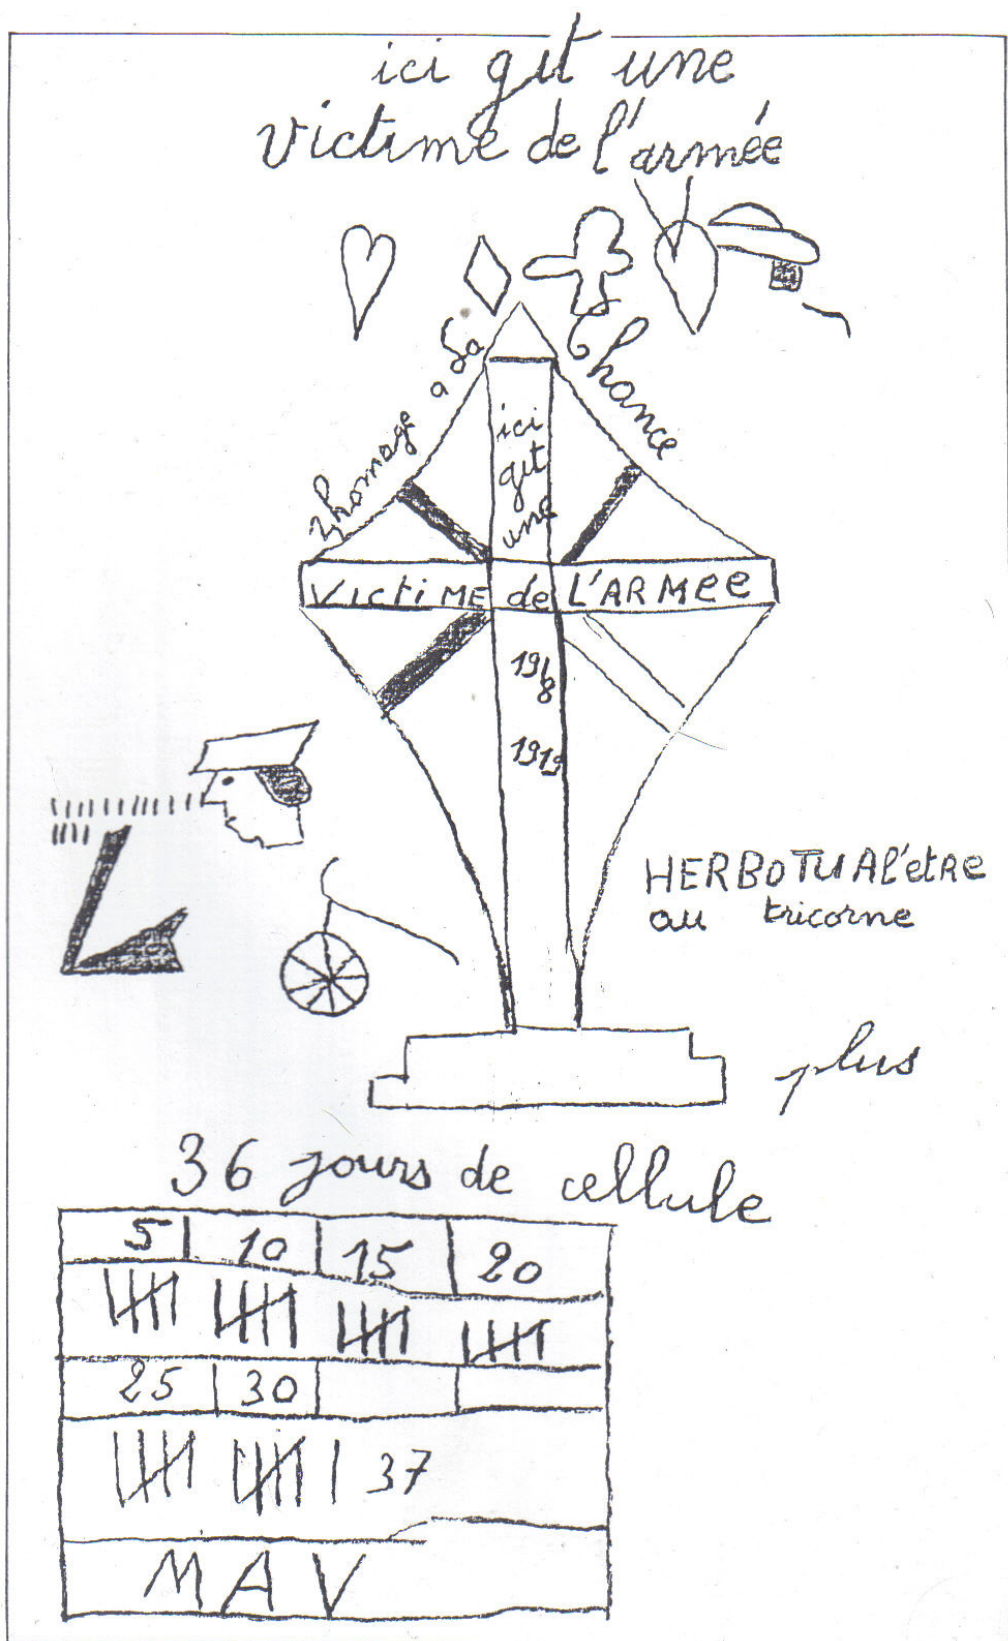 ici git une
victime de l'armée
homage a sa
Chance
ici
git
une
VictiME de L'ARMee
1918
1919
HERBOTUAl'etRe
au tricorne
plus
36 jours de cellule
5 10 15 20
25 30
37
MAV